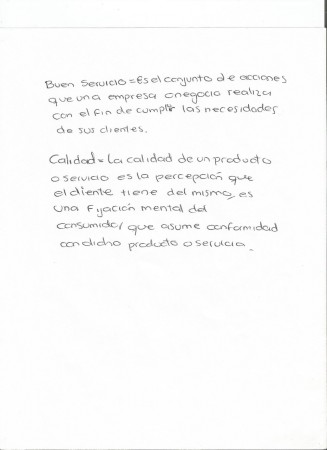 Buen Servicio = Es el conjunto de acciones
que una empresa o negocio realiza
con el fin de cumplir las necesidades
de sus clientes.
Calidad = La calidad de un producto
o servicio es la percepción que
el cliente tiene del mismo, es
una fijación mental del
consumidor que asume conformidad
con dicho producto o servicio.